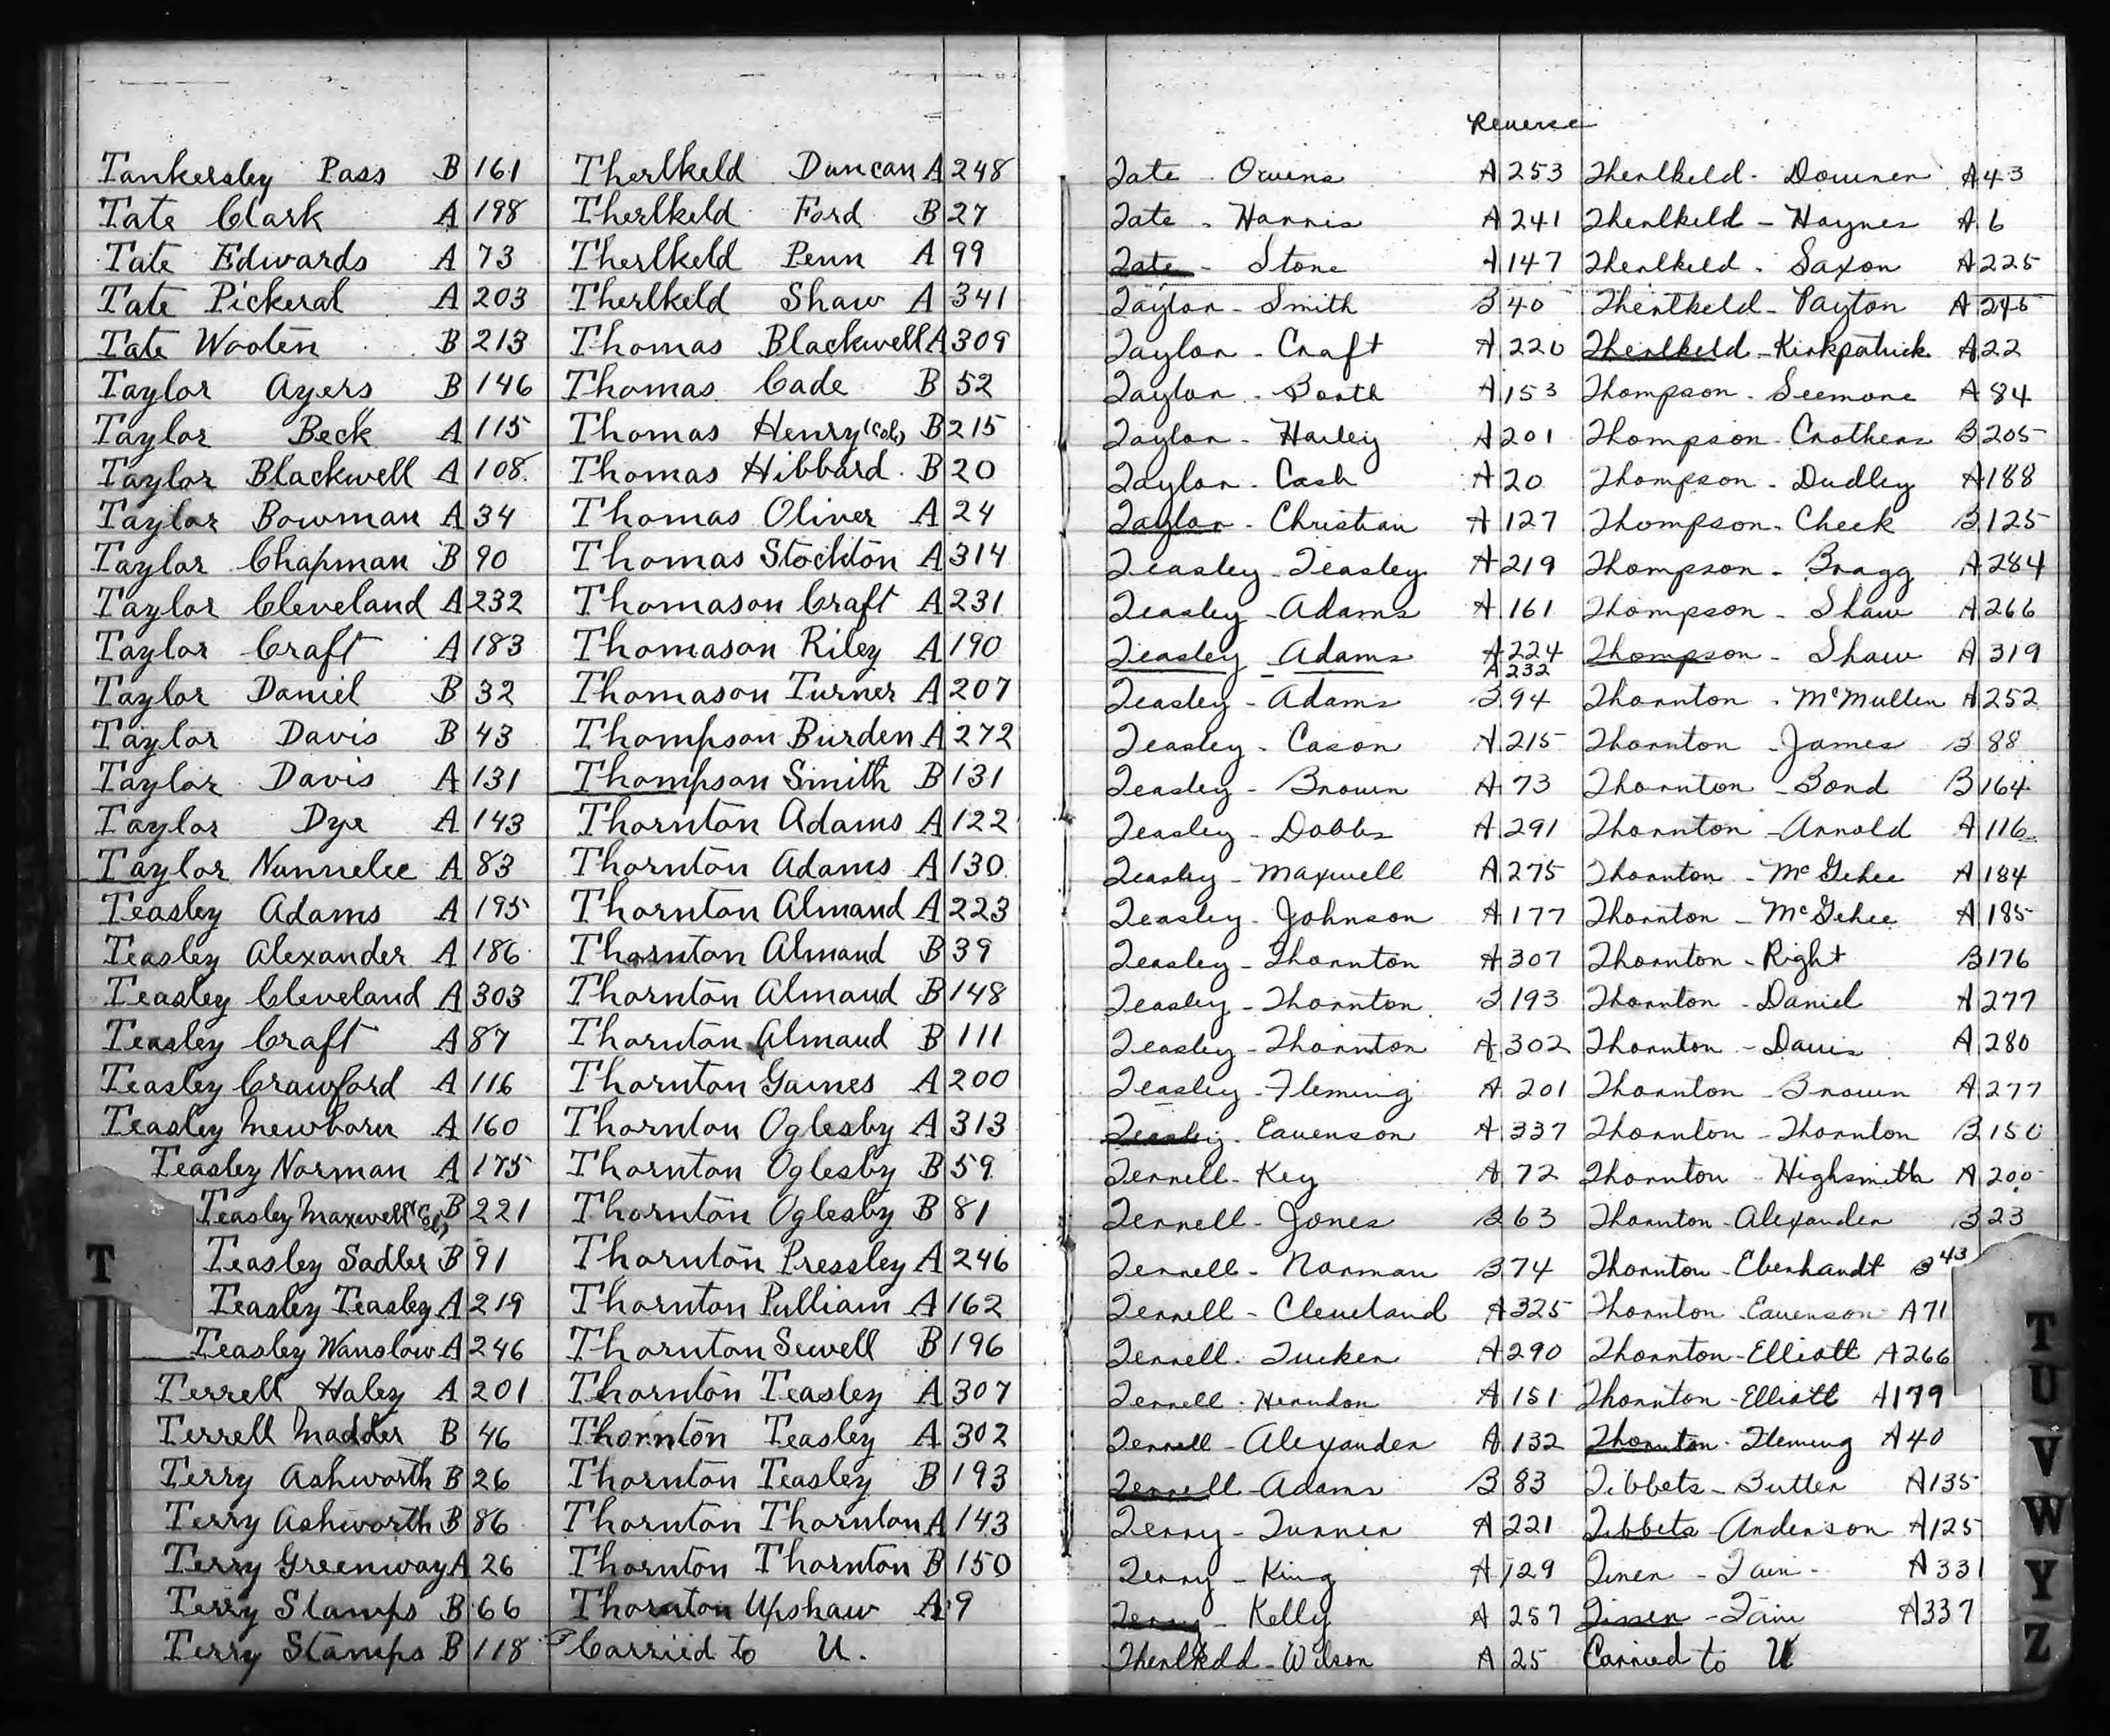 Tankersley Pass B 161
Tate Clark A 198
Tate Edwards A 73
Tate Pickeral A 203
Tate Wooten B 213
Taylor Ayers B 146
Taylor Beck A 115
Taylor Blackwell A 108
Taylor Bowman A 34
Taylor Chapman B 90
Taylor Cleveland A 232
Taylor Craft A 183
Taylor Daniel B 32
Taylor Davis B 43
Taylor Davis A 131
Taylor Dye A 143
Taylor Nunnelee A 83
Teasley Adams A 195
Teasley Alexander A 186
Teasley Cleveland A 303
Teasley Craft A 87
Teasley Crawford A 116
Teasley Newborn A 160
Teasley Norman A 175
Teasley Maxwell (Col) B 221
Teasley Sadler B 91
Teasley Teasley A 219
Teasley Wanslow A 246
Terrell Haley A 201
Terrell Madder B 46
Terry Ashworth B 26
Terry Ashworth B 86
Terry Greenway A 26
Terry Stamps B 66
Terry Stamps B 118
T
Therlkeld Duncan A 248
Therlkeld Ford B 27
Therlkeld Penn A 99
Therlkeld Shaw A 341
Thomas Blackwell A 309
Thomas Cade B 52
Thomas Henry (Col) B 215
Thomas Hibbard B 20
Thomas Oliver A 24
Thomas Stockton A 314
Thomason Craft A 231
Thomason Riley A 190
Thomason Turner A 207
Thompson Burden A 272
Thompson Smith B 131
Thornton Adams A 122
Thornton Adams A 130
Thornton Almand A 223
Thornton Almand B 39
Thornton Almand B 148
Thornton Almand B 111
Thornton Gaines A 200
Thornton Oglesby A 313
Thornton Oglesby B 59
Thornton Oglesby B 81
Thornton Pressley A 246
Thornton Pulliam A 162
Thornton Sewell B 196
Thornton Teasley A 307
Thornton Teasley A 302
Thornton Teasley B 193
Thornton Thornton A 143
Thornton Thornton B 150
Thornton Upshaw A 9
Carried to U.
Reverse
Tate - Owens A 253
Tate - Harris A 241
Tate - Stone A 147
Taylor - Smith B 40
Taylor - Craft A 220
Taylor - Booth A 153
Taylor - Harley A 201
Taylor - Cash A 20
Taylor - Christian A 127
Teasley - Teasley A 219
Teasley - Adams A 161
Teasley - Adams A 224
A 232
Teasley - Adams B 94
Teasley - Cason A 215
Teasley - Brown A 73
Teasley - Dobbs A 291
Teasley - Maxwell A 275
Teasley - Johnson A 177
Teasley - Thornton A 307
Teasley - Thornton B 193
Teasley - Thornton A 302
Teasley - Fleming A 201
Teasley - Eavenson A 337
Terrell - Key A 72
Terrell - Jones B 63
Terrell - Norman B 74
Terrell - Cleveland A 325
Terrell - Tucker A 290
Terrell - Herndon A 151
Terrell - Alexander A 132
Terrell - Adams B 83
Terry - Turner A 221
Terry - King A 129
Terry - Kelly A 257
Therlkeld - Wilson A 25
Therlkeld - Downer A 43
Therlkeld - Haynes A 6
Therlkeld - Saxon A 225
Therlkeld - Payton A 245
Therlkeld - Kirkpatrick A 22
Thompson - Seemore A 84
Thompson - Crothers B 205
Thompson - Dudley A 188
Thompson - Cheek B 125
Thompson - Bragg A 284
Thompson - Shaw A 266
Thompson - Shaw A 319
Thornton - McMullen A 252
Thornton - James B 88
Thornton - Bond B 164
Thornton - Arnold A 116
Thornton - McGehee A 184
Thornton - McGehee A 185
Thornton - Right B 176
Thornton - Daniel A 277
Thornton - Davis A 280
Thornton - Brown A 277
Thornton - Thornton B 150
Thornton - Highsmith A 200
Thornton - Alexander B 23
Thornton - Eberhardt B 43
Thornton - Eavenson A 71
Thornton - Elliott A 266
Thornton - Elliott A 179
Thornton - Fleming A 40
Tibbets - Butler A 135
Tibbets - Anderson A 125
Tiner - Tain - A 331
Tain A 337
Carried to U
T
U
V
W
Y
Z